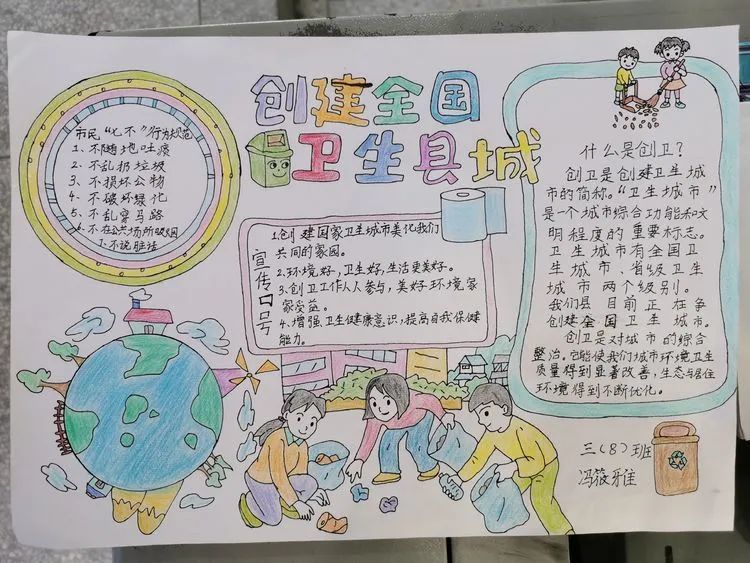 创建全国
卫生县城
市民“七不”行为规范
1、不随地吐痰
2、不乱扔垃圾
3、不损坏公物
4、不破坏绿化
5、不乱穿马路
6、不在公共场所吸烟
7、不说脏话
宣传口号
1.创建国家卫生城市美化我们
共同的家园。
2.环境好,卫生好,生活更美好。
3.创卫工作人人参与,美好环境家
家受益。
4、增强卫生健康意识,提高自我保健
能力。
什么是创卫?
创卫是创建卫生城
市的简称。“卫生城市”
是一个城市综合功能和文
明程度的重要标志。
卫生城市有全国卫
生城市、省级卫生
城市两个级别。
我们县目前正在争
创建全国卫生城市。
创卫是对城市的综合
整治。它能使我们城市环境卫生
质量得到显著改善,生态与居住
环境得到不断优化。
三(8)班
冯筱雅